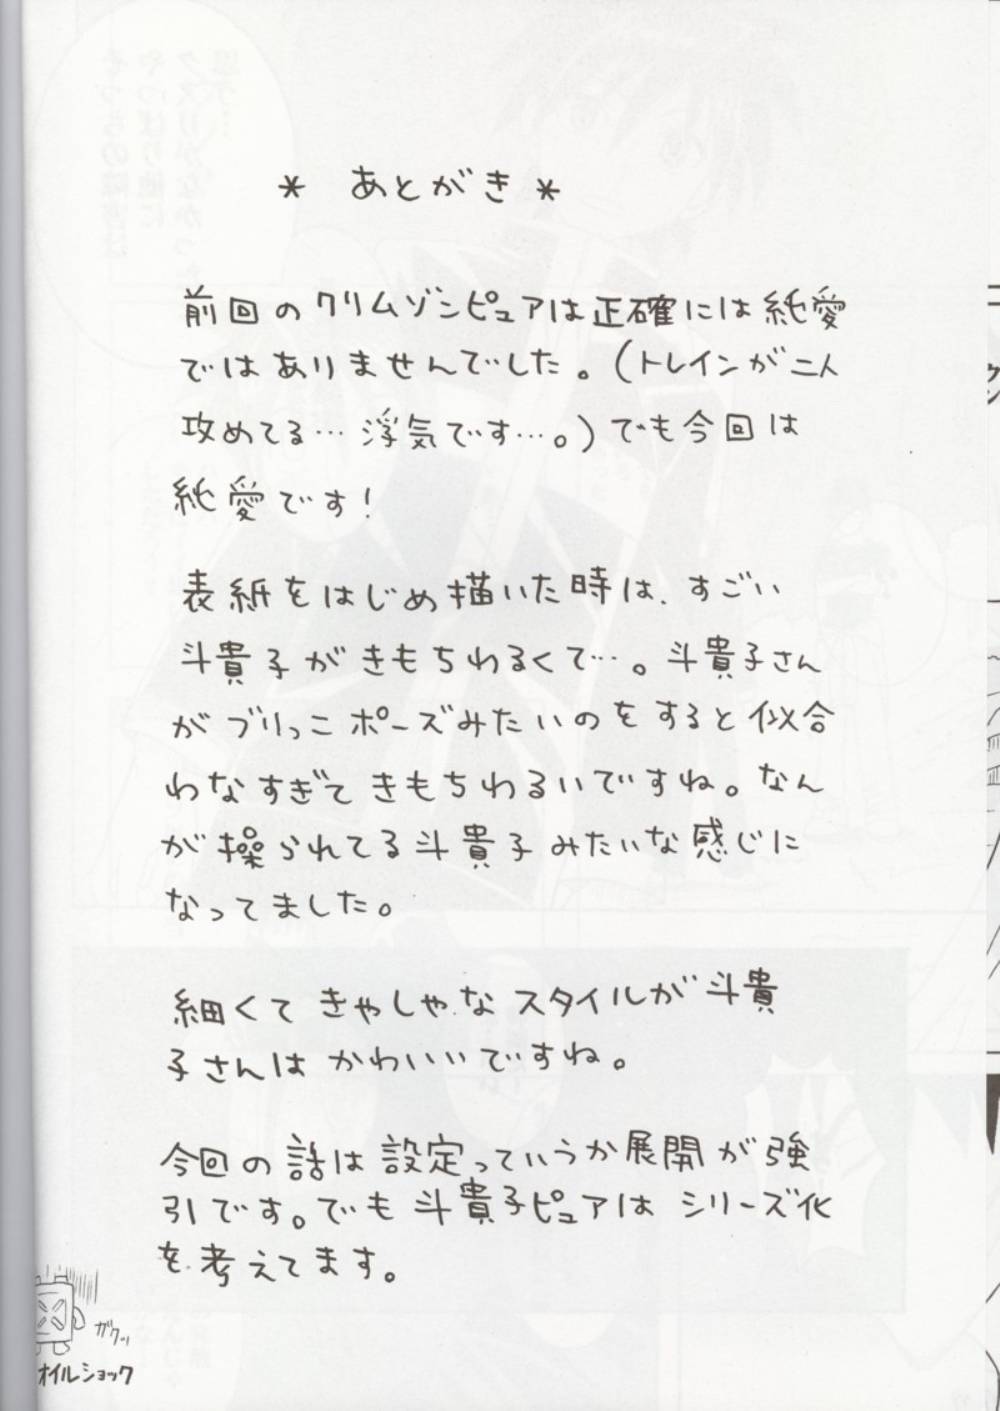 * あとがき *
前回のクリムゾンピュアは正確には純愛
ではありませんでした。(トレインが二人
攻めてる…浮気です…。)でも今回は
純愛です!
表紙をはじめ描いた時は、すごい
斗貴子がきもちわるくて…。斗貴子さん
がブリっこポーズみたいのをすると似合
わなすぎてきもちわるいですね。なん
が操られてる斗貴子みたいな感じに
なってました。
細くてきゃしゃなスタイルが斗貴
子さんはかわいいですね。
今回の話は設定っていうか展開が強
引です。でも斗貴子ピュアはシリーズ化
を考えてます。
ガクッ
オイルショック